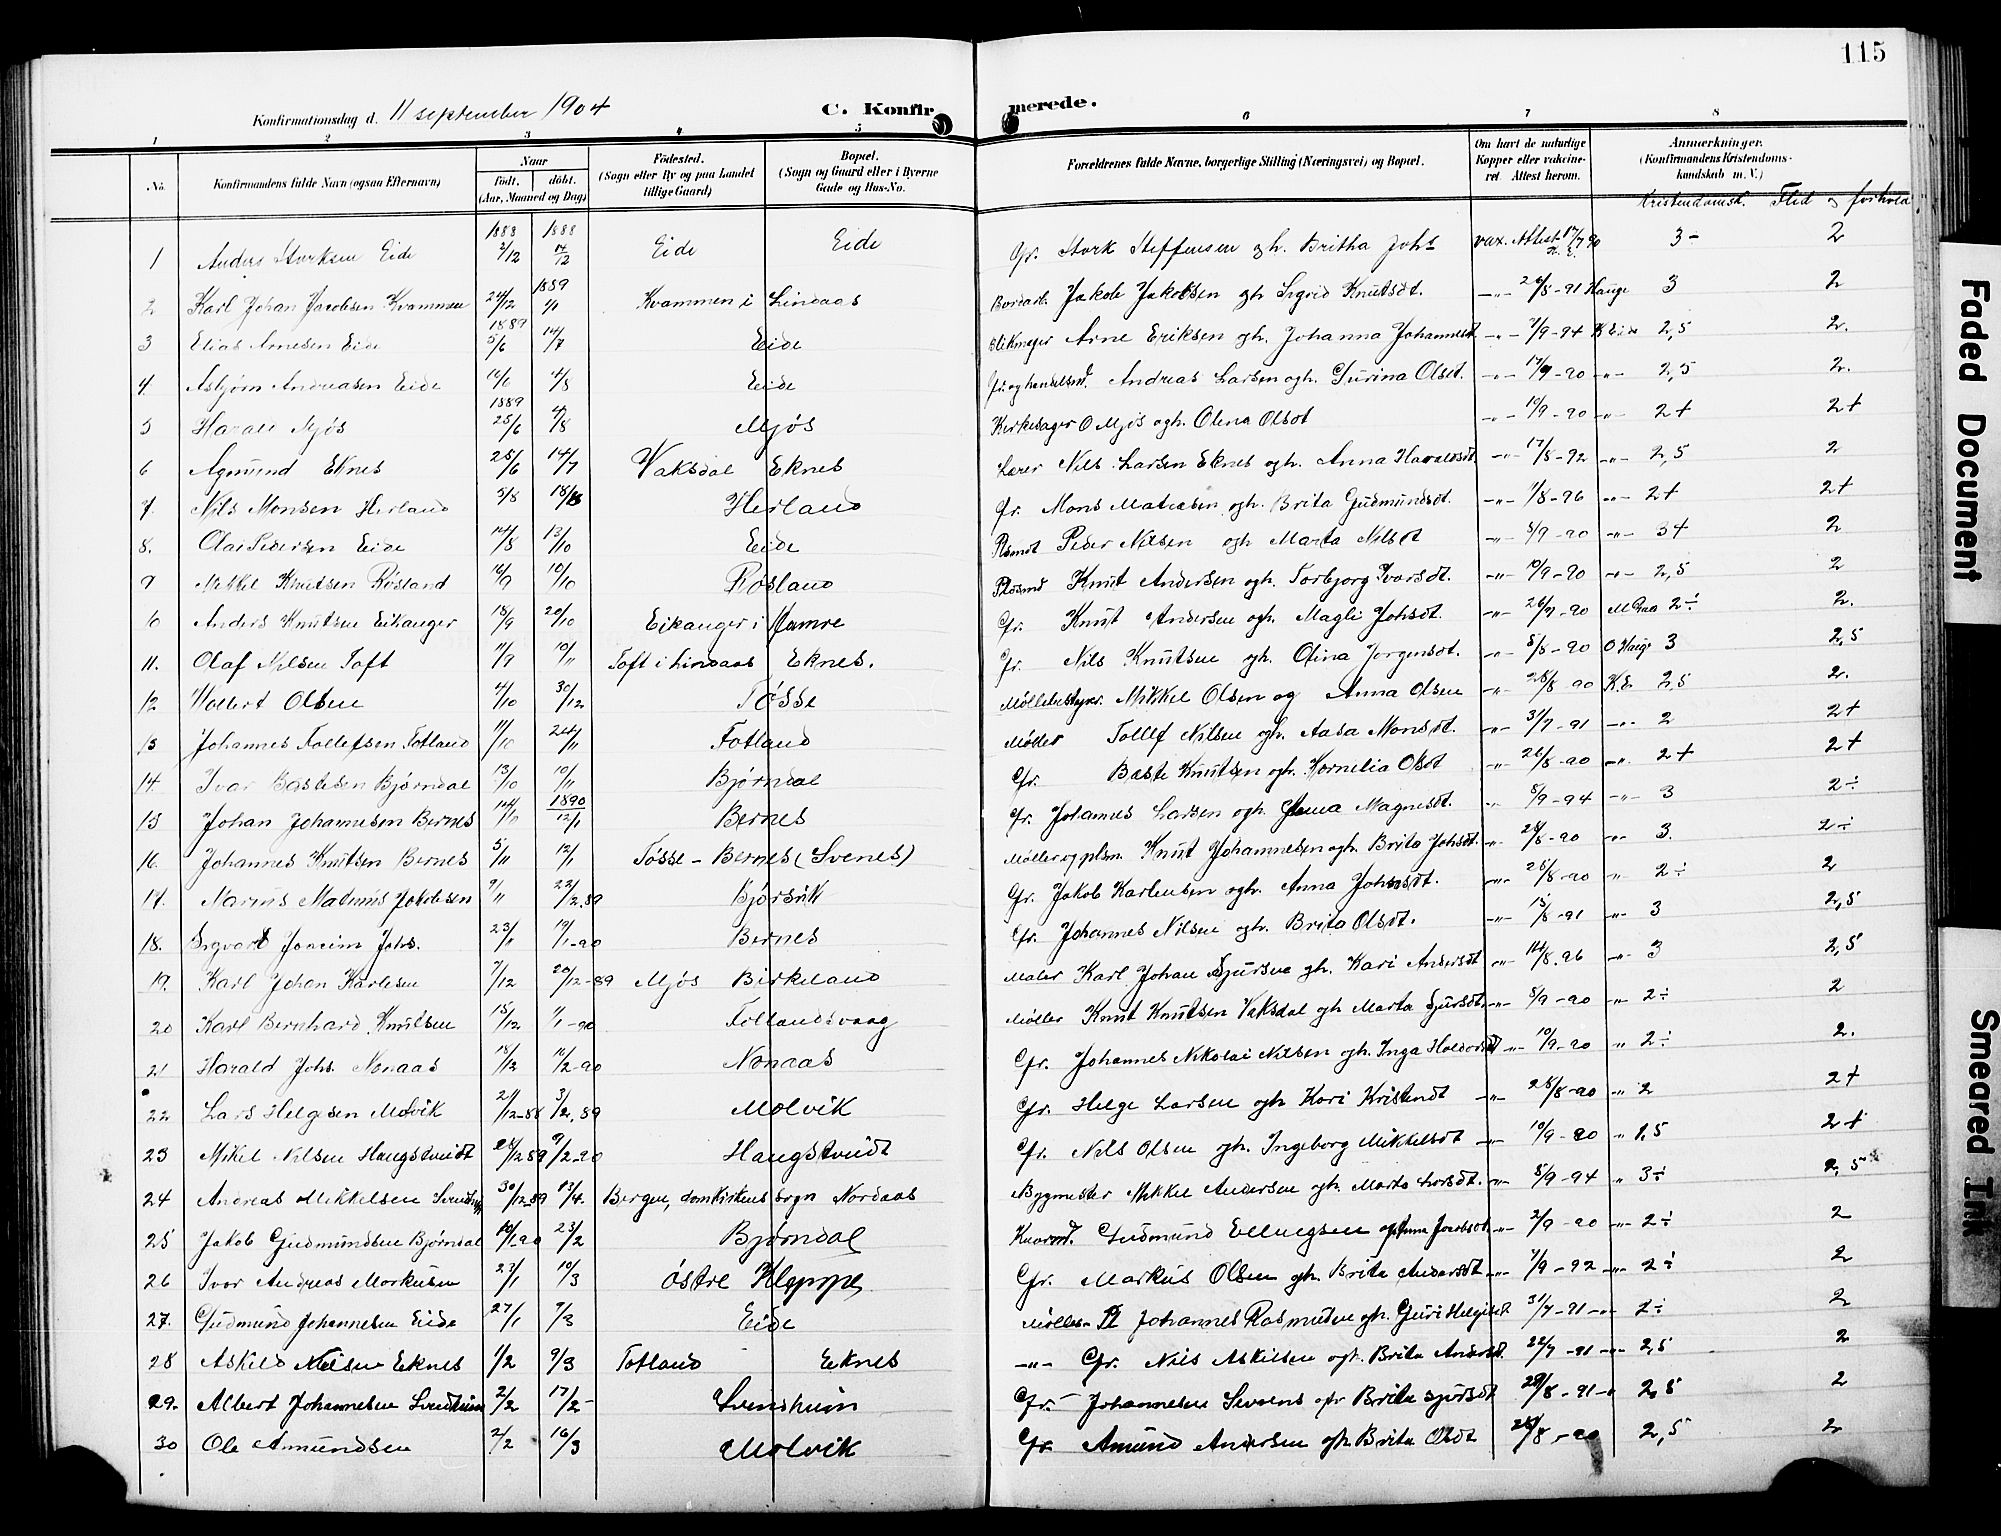 115
Konfirmationsdag d. 11 september 1904
C. Konfirmerede.
1 2 3 4 5 6 7 8
No.
Konfirmandens fulde Navn (ogsaa Efternavn)
Naar
født, døbt.
(Aar, Maaned og Dag)
Fødested.
(Sogn eller By og paa Landet tillige Gaard)
Bopæl.
(Sogn og Gaard eller i Byerne Gade og Hus-No.
Forældrenes fulde Navne, borgerlige Stilling (Næringsvei) og Bopæl.
Om havt de naturlige Kopper eller vakcineret. Attest herom.
Anmerkninger.
(Konfirmandens Kristendomskundskab m. V.)
Kristendomsk. Flid og forhold
1 Anders Storksen Eide 1888 2/12 1888 Eide Eide Gr. Stork Steffensen gh. Britha Johs vax. Attest 17/7 90 3- 2
2 Karl Johan Jacobsen Kvammen 24/12 1889 Kvammen i Lindaas Jakob Jakobsen gh Sigrid Knutsdt. -"- 26/8-91 Hauge 3 2
3 Elias Arnesen Eide 1889 5/6 14/7 Eide Arne Eriksen gh. Johanna Johannesdt -"- 7/9-94 K Eide 2,5 2.
4. Asbjørn Andreasen Eide 4/8 Eide Andreas Larsen ogh. Gurina Olsdt. -"- 17/9-90 -"- 2,5 2.
5 Harald Mjøs 1889 25/6 4/8 Mjøs Kirkesager O Mjøs ogh. Olena Olsdt -"- 10/9-90 -"- 2+ 2+
6 Agmund Eknes 25/6 14/7 Vaksdal Eknes Lærer Nils Larsen Eknes ogh. Anna Haraldsdt. -"- 17/8-92 -"- 2,5 2
7. Nils Monsen Herland 5/8 18/8 Herland Gr. Mons Matiasen ogh. Brita Gudmundsdt. -"- 1/8-96 -"- 2+ 2+
8. Olai Pedersen Eide 14/8 13/10 Eide Plsmdt Peder Nilsen ogh Marta Nilsdt -"- 5/9-90 -"- 3+ 2
9 Mikkel Knutsen Røsland 16/9 10/10 Røsland Knut Andersen ogh. Torbjorg Ivarsdt. -"- 10/9-90 -"- 2,5 2
10 Anders Knutsen Eikanger 18/9 20/10 Eikanger i Hamre Gr. Knut Andersen ogh. Magli Johsdt. -"- 26/7-90 2÷ 2.
11. Olaf Nilsen Toft 11/9 10/11 Toft i Lindaas Eknes. Gr. Nils Knutsen gh. Olina Jorgensdt. -"- 5/8-90 O Hauge 3 2,5
12 Olsen 4/10 30/12 Tøsse Møllebestyrer. Mikkel Olsen og Anna Olsen -"- 28/8 90 K.E 2,5 2.
13 Johannes Tollefsen Fotland 11/10 24/11 Fotland Møller Tollef Nilsen gh. Aasa Monsdt. -"- 31/7-91 -"- 2 2+
14. Ivar Bastesen Bjørndal 13/10 10/11 Bjørndal Gr. Baste Knutsen ogh. Kornelia Olsdt -"- 26/8-90 -"- 2+ 2+
15 Johan Johannesen Bernes 14/11 1890 12/1 Bernes Gr. Johannes Larsen ogh. Magnesdt. -"- 5/9-94 -"- 3 2÷
16. Johannes Knutsen Bernes 5/11 12/1 Tøsse - Bernes (Svenes) Møller og plsm. Knut Johannesen ogh. Brita Johsdt. -"- 28/8-90 -"- 3. 2÷
17. Marius Matinius Jakobsen 9/11 22/12.89 Bjørsvik Gr. Jakob Karlensen ogh. Anna Johnsdt. -"- 25/8-90 -"- 2÷ 2
18. Sigvart Joacim Johs. 23/11 19/1-90 Bernes Gr. Johannes Nilsen ogh. Brita Olsdt. -"- 13/8-91 -"- 3 2,5
19. Karl Johan Karlsen 7/12 20/12-89 Mjøs Birkeland Maler Karl Johan Sjursen gh. Kari Andersdt -"- 14/8.96 -"- 3 2,5
20 Karl Bernhard Knutsen 15/12 1/1-90 Fotlandsvaag Møller Knut Knutsen Vaksdal gh Marta Sjursdt. -"- 5/9-90 -"- 2÷ 2
21 Harald Johs. Nonaas 18/12 16/2-90 Nonaas Gr. Johannes Nikolai Nilsen ogh. Inga -"- 10/9-90 -"- 2÷ 2.
22 Lars Helgesen Molvik 21/12-88 3/2.89 Molvik Gr. Helge Larsen ogh Kari -"- 28/8-90 -"- 2 2+
23 Mikel Nilsen Haugstveidt 28/12 89 9/2-90 Haugstveidt Gr. Nils Olsen gh. Ingeborg Mikkelsdt -"- 10/9-90 " 1,5 2+
24 Andreas Mikkelsen 30/12-89 13/4. Bergen, domkirkens sogn Nordaas Bygmester Mikkel Andersen gh. Marta Larsdt. -"- 5/9-94 " 3÷ 2,5
25 Jakob Gudmundsen Bjørndal 10/1-90 23/2 Bjørndal Gudmund Ellingsen Jacobsdt -"- 2/9-90 -"- 2÷ 2
26 Ivar Andreas Markusen 23/1 10/3 østre Kleppe Gr. Markus Olsen gh. Brita Andersdt -"- 7/9-92 -"- 2÷ 2
27. Gudmund Johannesen Eide 27/1 9/3 Eide Møller Johannes Rasmusen gh. Guri Helgesdt. 31/7-91 -"- 2÷ 2
28 Askild Nilsen Eknes 1/2 9/3 Fotland Eknes -"- Gr. Nils Askilsen ogh. Brita Andersdt. 22/7-91 -"- 2,5 2
29. Albert Johannesen 2/2 17/2 Svensheim Gr. Johannesen Brita Sjursdt 29/8-91 -"- 2,5 2
30 Ole Amundsen 2/2 16/3 Molvik Gr. Amund Andersen gh Brita Olsdt 28/8-90 2,5 2
Faded Document
Smeared Ink